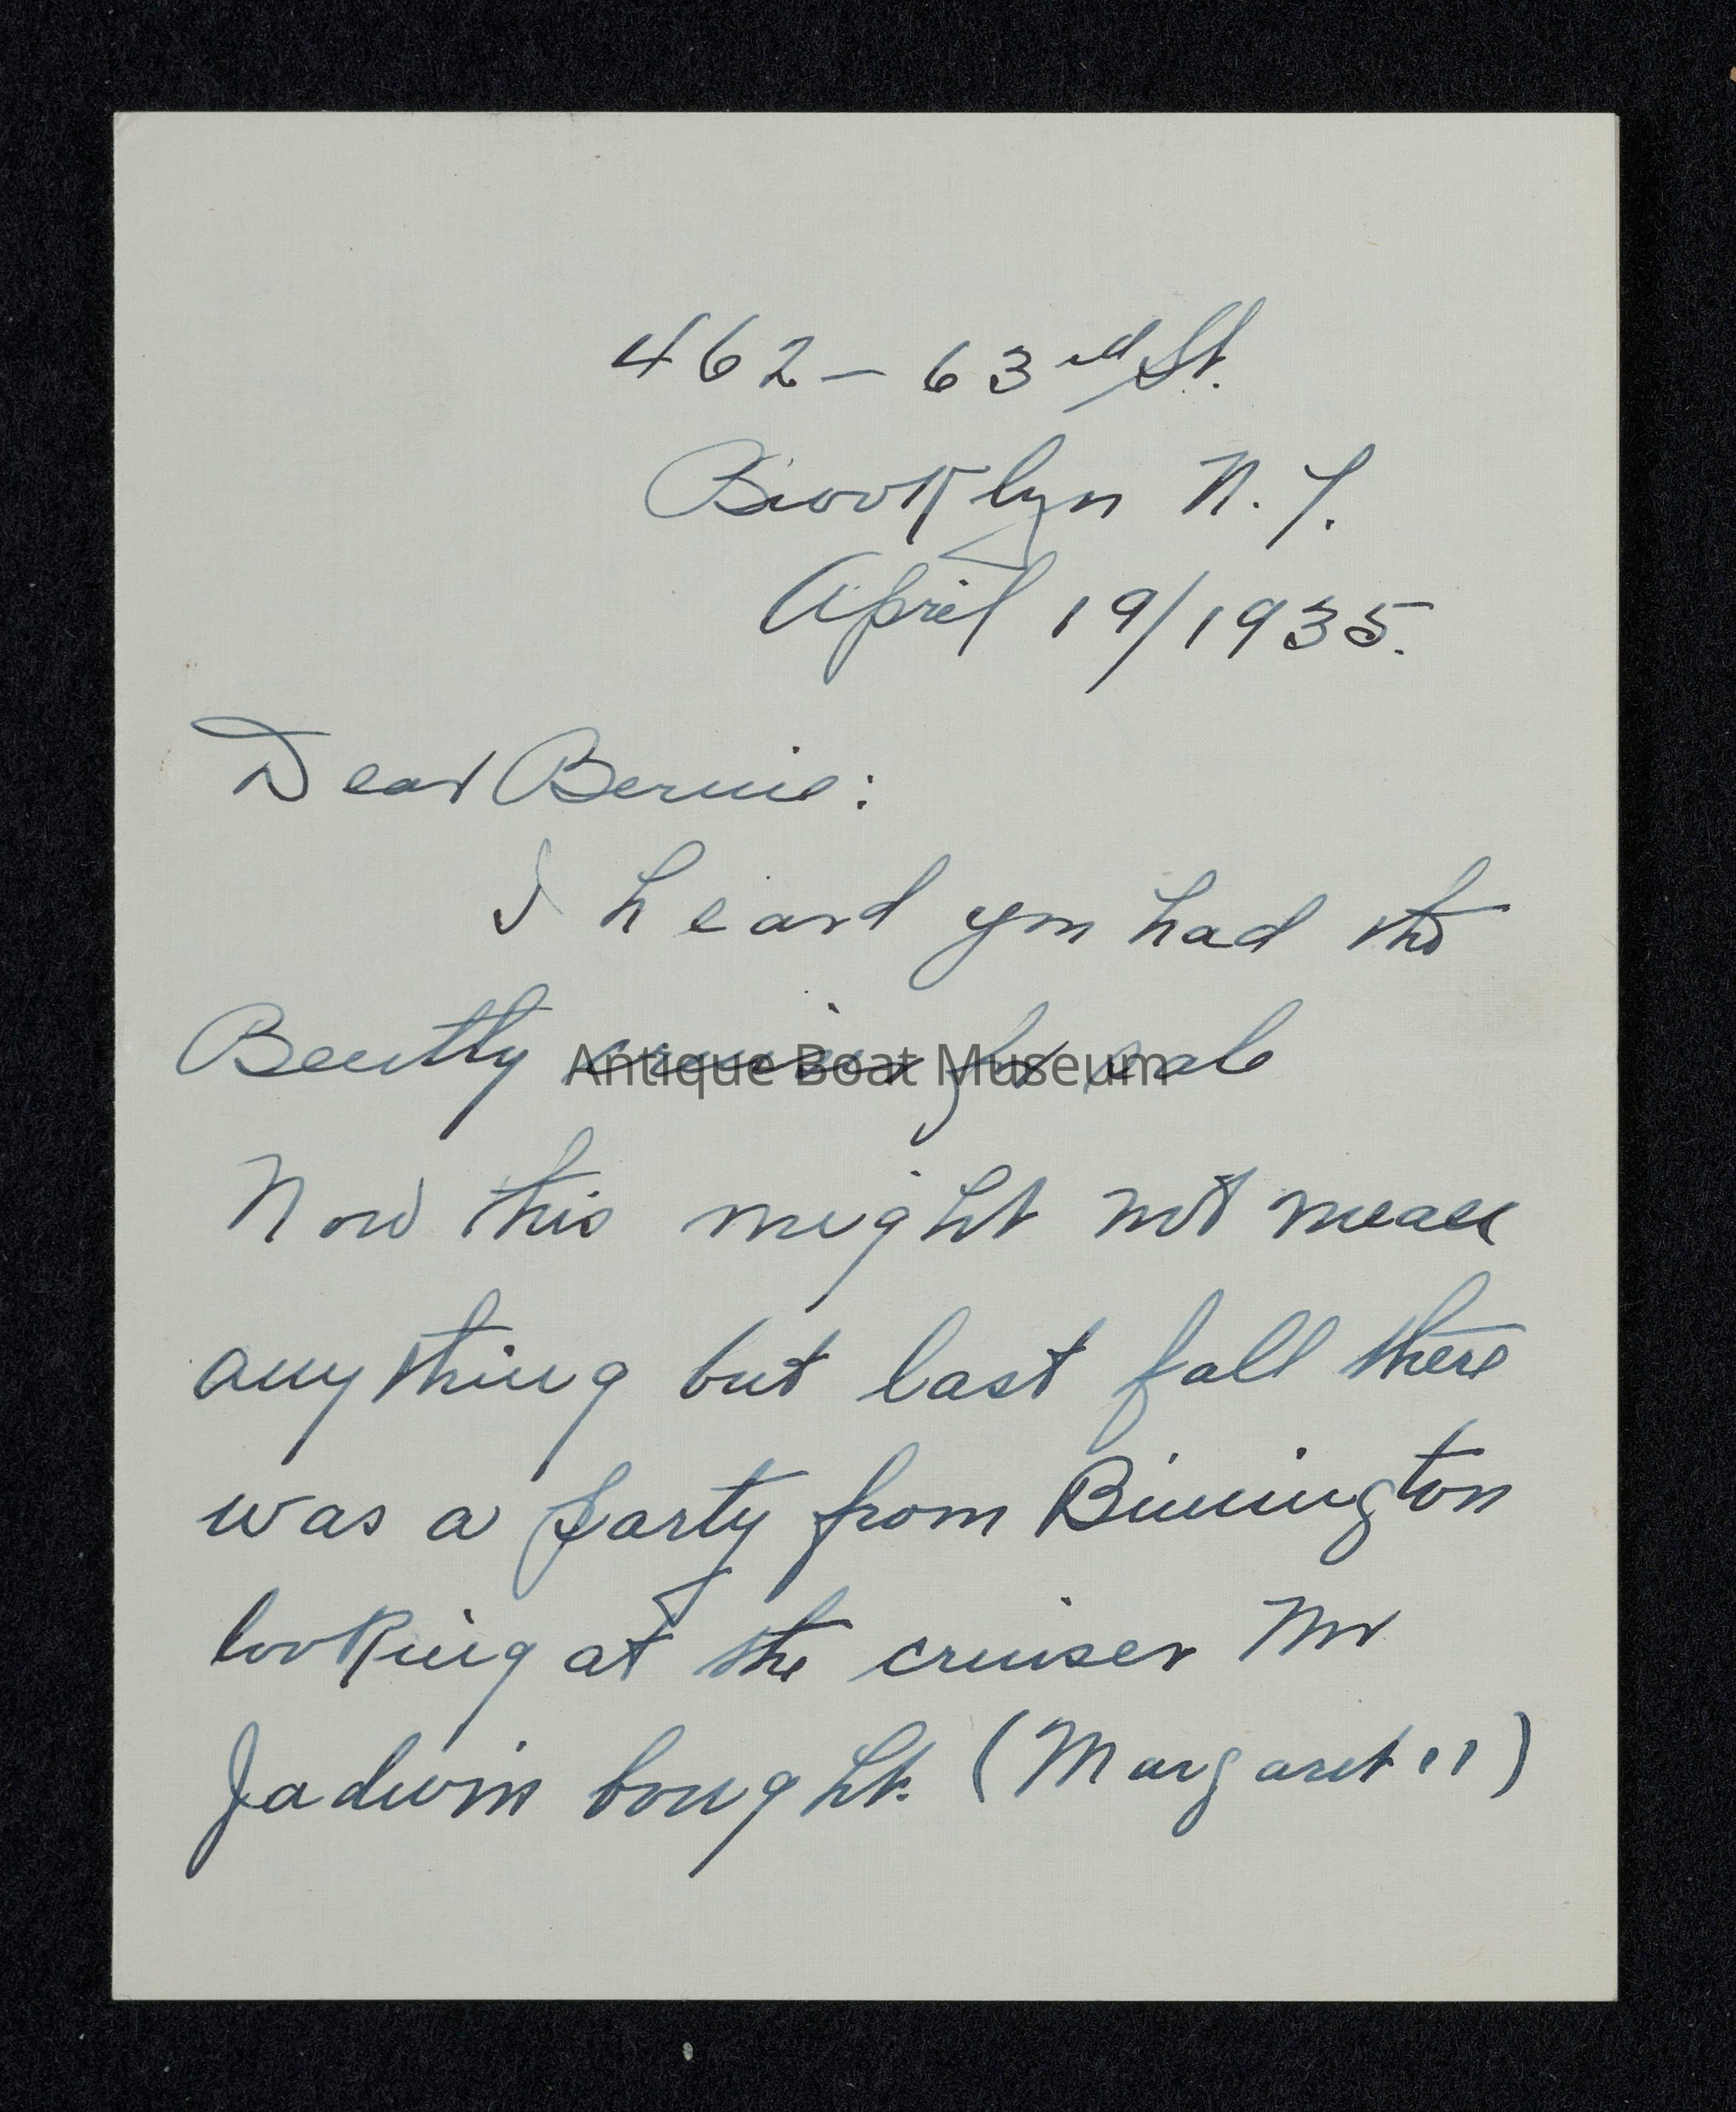 462 - 63rd St.
Brooklyn N.Y.
April 19/1935.
Dear Bernie:
I heard you had the
Bently cruiser for sale
Antique Boat Museum
Now this might not mean
anything but last fall there
was a party from Binnington
looking at the cruiser Mr
Jadwin bought. (Margaret 11)